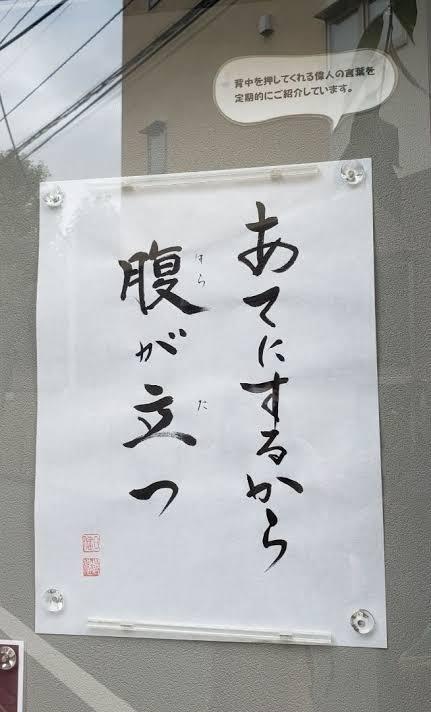 背中を押してくれる偉人の言葉を
定期的にご紹介しています。
あてにするから
腹が立つ
はら
た